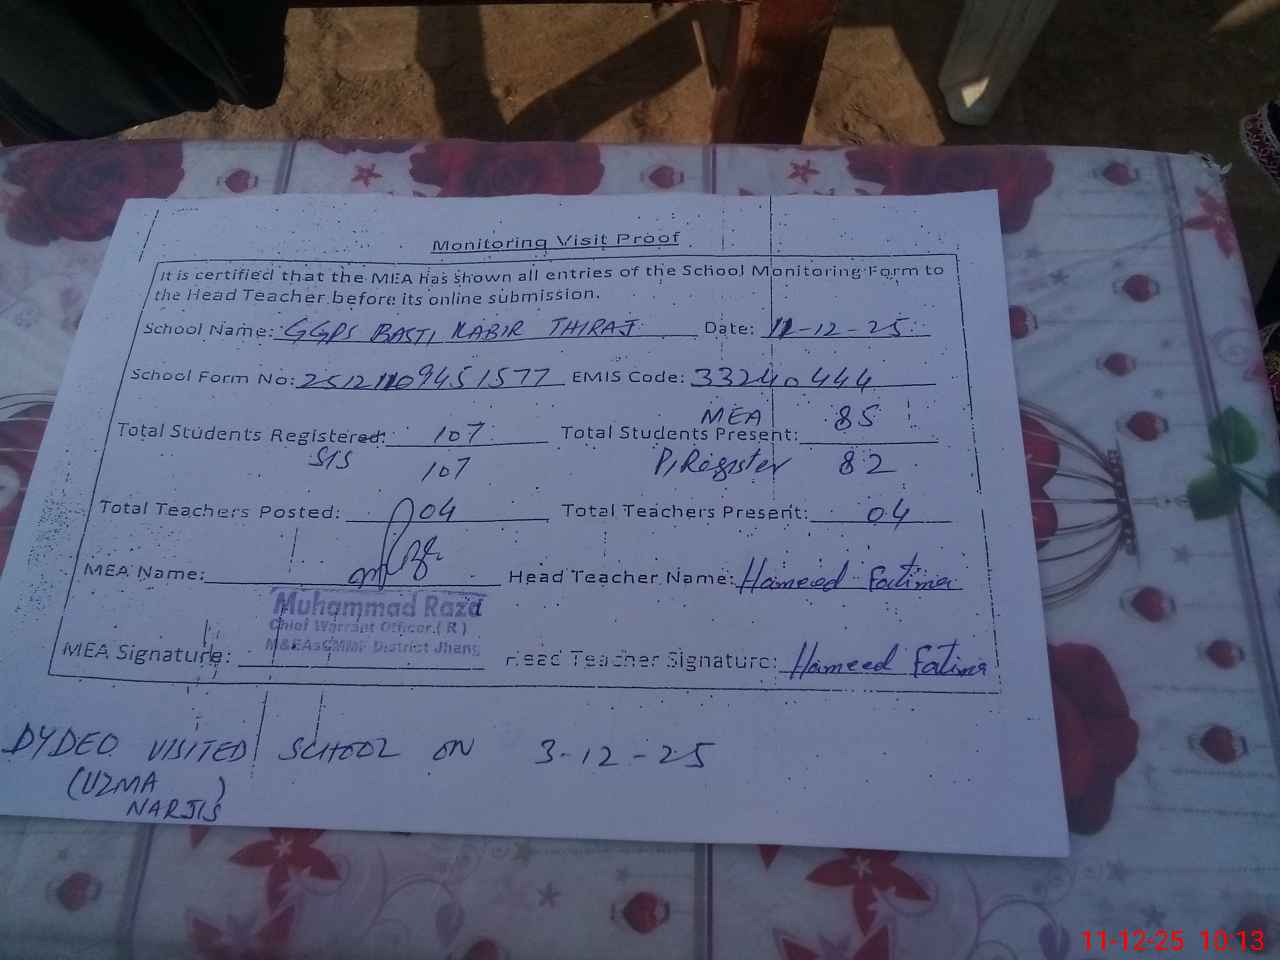 Monitoring Visit Proof
It is certified that the MEA has shown all entries of the School Monitoring Form to
the Head Teacher before its online submission.
School Name: GGPS BASTI KABIR THIRAJ Date: 11-12-25
School Form No: 25121109451577 EMIS Code: 33240444
MEA 85
Total Students Registered: 107 Total Students Present:
SIS 107 P,Register 82
Total Teachers Posted: 04 Total Teachers Present: 04
MEA Name: Head Teacher Name: Hameed Fatima
Muhammad Raza
Chief Warrant Officer.(R)
M&EAs CMMF District Jhang
MEA Signature: Head Teacher Signature: Hameed Fatima
DYDEO VISITED SCHOOL ON 3-12-25
(UZMA
NARJIS)
11-12-25 10:13